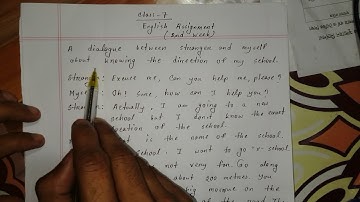 Class-7
English Assignment
(2nd week)
A dialogue between stranger and myself
about knowing the direction of my school.
Stran : Excuse me, Can you help me, please?
Mys : Oh! Sure, how can I help you?
Stran : Actually, I am going to a new
school but I don't know the exact
location of the school.
is the name of the school.
school. I want to go
not very far. Go along
about 200 metres. You
big mosque on the
of the road